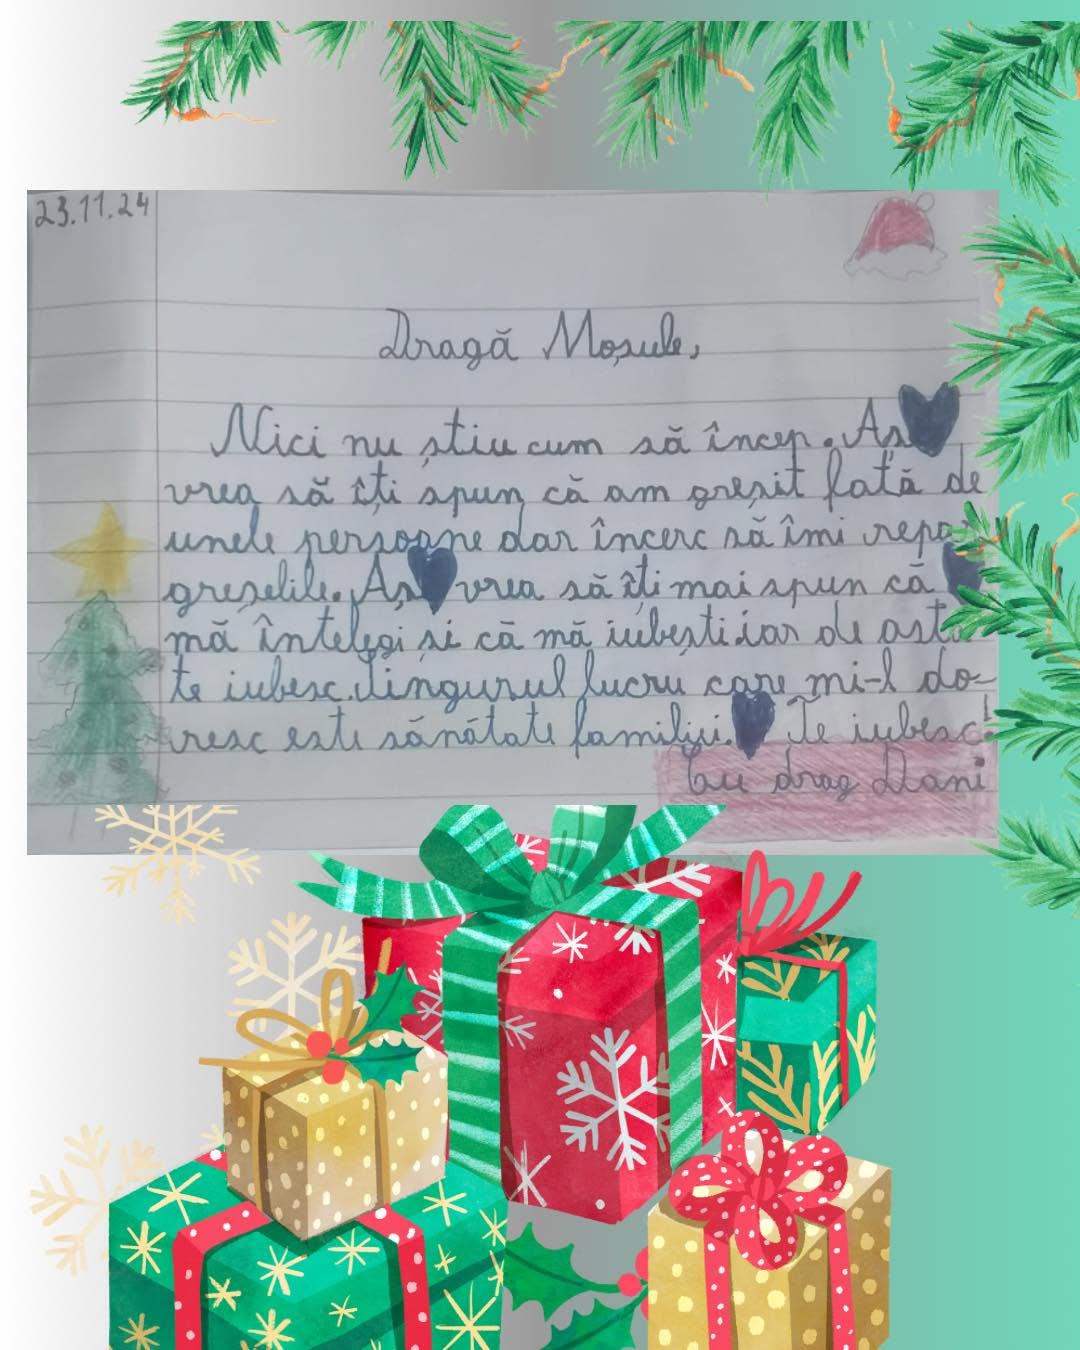 23.11.24
Dragă Moșule,
Nici nu știu cum să încep. Aș
vrea să îți spun că am greșit față de
unele persoane dar încerc să îmi repa-
greșelile. Aș vrea să îți mai spun că
mă înțelegi și că mă iubești.iar de asta
te iubesc. Singurul lucru care mi-l do-
resc este sănătate familiei. Te iubesc!
Cu drag Dani